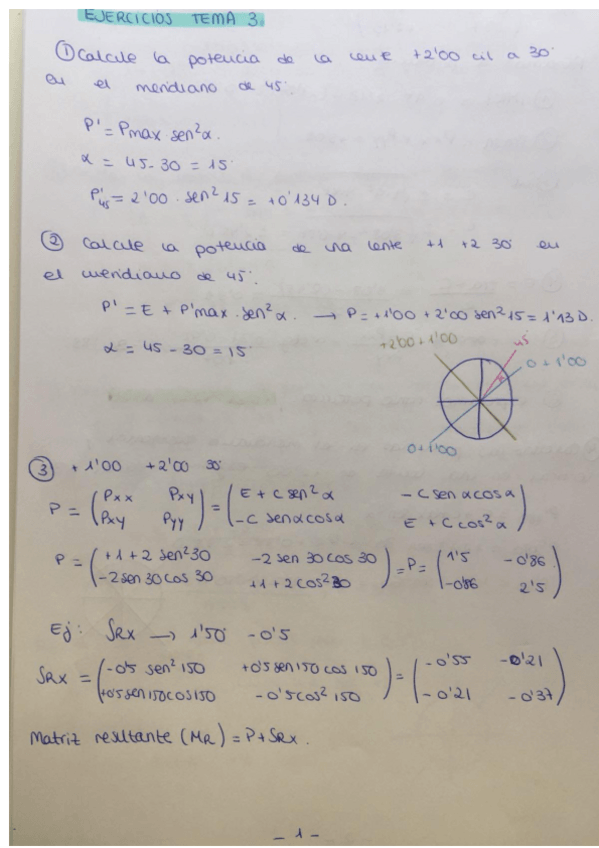 EJERCICIOS TEMA 3.
① Calcule la potencia de la lente +2'00 cil a 30°
en el meridiano de 45°
P' = Pmax sen²α.
α = 45-30 = 15°
P'₄₅ = 2'00 · sen² 15 = +0'134 D.
② Calcule la potencia de una lente +1 +2 30° en
el meridiano de 45°.
P' = E + P'max · sen²α. → P = +1'00 + 2'00 sen² 15 = 1'13 D.
α = 45 - 30 = 15°
+2'00 + 1'00
45
0 + 1'00
α
0 + 1'00
③ + 1'00 +2'00 30°
P = (Pxx Pxy) = (E + C sen² α - C sen α cos α)
(Pxy Pyy) (-C sen α cos α E + C cos² α)
P = (+1 + 2 sen² 30 -2 sen 30 cos 30) = P = (1'5 -0'86)
(-2 sen 30 cos 30 +1 + 2 cos² 30) (-0'86 2'5)
Ej: SRX → 150° -0'5
SRX = (-0'5 sen² 150 +0'5 sen 150 cos 150) = (-0'55 -0'21)
(+0'5 sen 150 cos 150 -0'5 cos² 150) (-0'21 -0'37)
Matriz resultante (MR) = P + SRX.
- 1 -